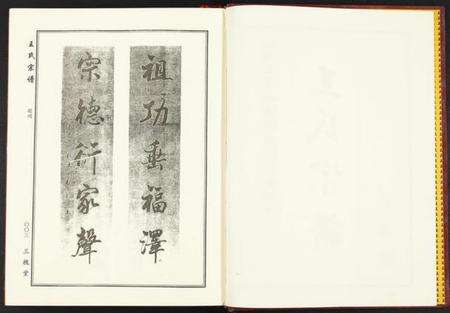 祖功垂福澤
宗德衍家聲
王氏宗譜
〇〇三
三槐堂